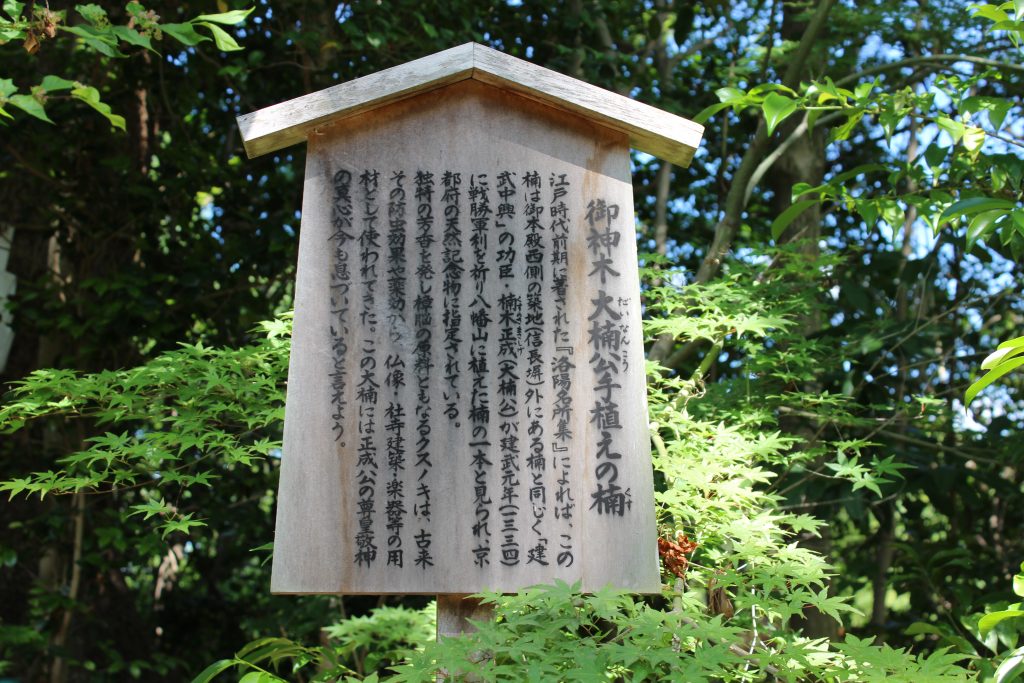 御神木 大楠公手植えの楠
だいなんこう
くす
江戸時代前期に著された『洛陽名所集』によれば、この
楠は御本殿西側の築地(信長塀)外にある楠と同じく、「建
武中興」の功臣・楠木正成(大楠公)が建武元年(一三三四)
くすのきまさしげ
に戦勝軍利を祈り八幡山に植えた楠の一本と見られ、京
都府の天然記念物に指定されている。
独特の芳香を発し樟脳の原料ともなるクスノキは、古来
その防虫効果や薬効から、仏像・社寺建築・楽器等の用
材として使われてきた。この大楠には正成公の尊皇敬神
の真心が今も息づいていると言えよう。